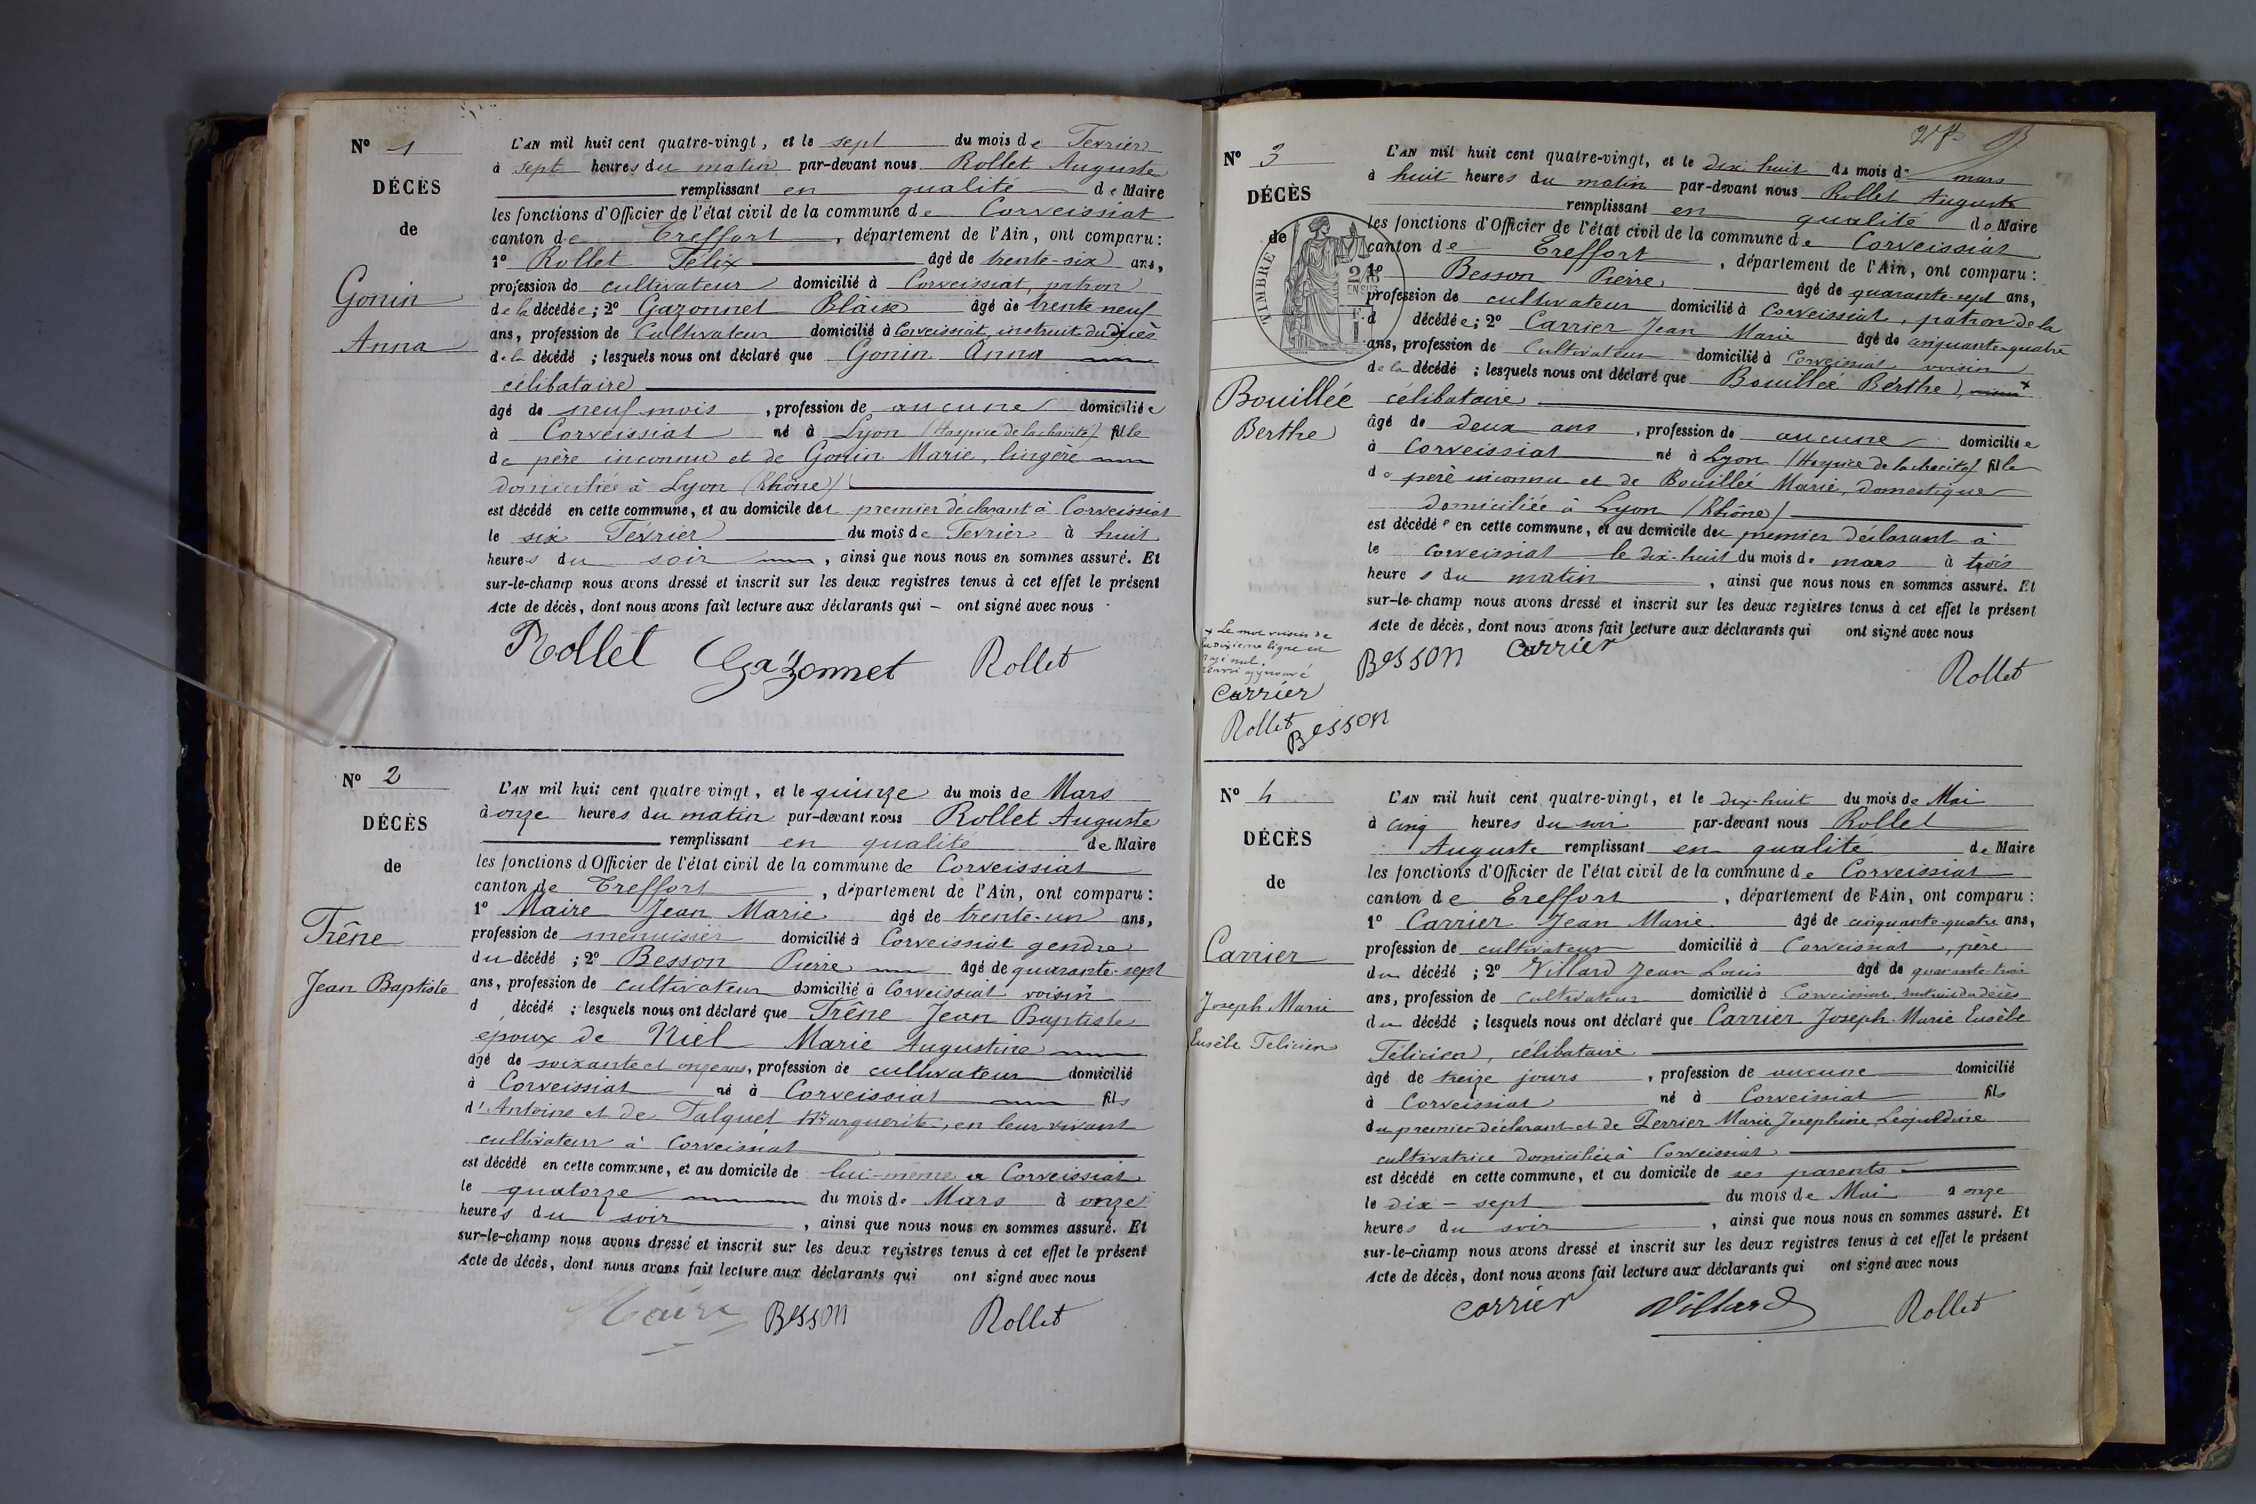 N° 1
DÉCÈS
de
Gonin
Anna
L'AN mil huit cent quatre-vingt, et le sept du mois de Fevrier
à sept heures du matin par-devant nous Rollet Auguste
remplissant en qualité de Maire
les fonctions d'Officier de l'état civil de la commune de Corveissiat
canton de Treffort, département de l'Ain, ont comparu :
1° Rollet Felix âgé de trente-six ans,
profession de cultivateur domicilié à Corveissiat, patron
de la décédée ; 2° Gazonnet Blaise âgé de trente neuf
ans, profession de Cultivateur domicilié à Corveissiat, instruit du décès
de la décédé ; lesquels nous ont déclaré que Gonin Anna
célibataire
âgé de neuf mois, profession de aucune domiciliée
à Corveissiat né à Lyon (Hospice de la charité) fille
de père inconnu et de Gonin Marie, lingère
domiciliée à Lyon (Rhône)
est décédé en cette commune, et au domicile du premier déclarant à Corveissiat
le six Février du mois de Fevrier à huit
heures du soir, ainsi que nous nous en sommes assuré. Et
sur-le-champ nous avons dressé et inscrit sur les deux registres tenus à cet effet le présent
Acte de décès, dont nous avons fait lecture aux déclarants qui – ont signé avec nous
Rollet Gazonnet Rollet
N° 2
DÉCÈS
de
Trêne
Jean Baptiste
L'AN mil huit cent quatre-vingt, et le quinze du mois de Mars
à onze heures du matin par-devant nous Rollet Auguste
remplissant en qualité de Maire
les fonctions d'Officier de l'état civil de la commune de Corveissiat
canton de Treffort, département de l'Ain, ont comparu :
1° Maire Jean Marie âgé de trente-un ans,
profession de menuisier domicilié à Corveissiat gendre
du décédé ; 2° Besson Pierre âgé de quarante-sept
ans, profession de cultivateur domicilié à Corveissiat voisin
d décédé ; lesquels nous ont déclaré que Trêne Jean Baptiste
époux de Niel Marie Augustine
âgé de soixante et onze ans, profession de cultivateur domicilié
à Corveissiat né à Corveissiat fils
d'Antoine et de Falquet Marguerite, en leur vivant
cultivateur à Corveissiat
est décédé en cette commune, et au domicile de lui-même à Corveissiat
le quatorze du mois de Mars à onze
heures du soir, ainsi que nous nous en sommes assuré. Et
sur-le-champ nous avons dressé et inscrit sur les deux registres tenus à cet effet le présent
Acte de décès, dont nous avons fait lecture aux déclarants qui ont signé avec nous
Maire Besson Rollet
N° 3
DÉCÈS
de
TIMBRE
Bouillée
Berthe
L'AN mil huit cent quatre-vingt, et le dix huit du mois de mars
à huit heures du matin par-devant nous Rollet Auguste
remplissant en qualité de Maire
les fonctions d'Officier de l'état civil de la commune de Corveissiat
canton de Treffort, département de l'Ain, ont comparu :
1° Besson Pierre âgé de quarante-sept ans,
profession de cultivateur domicilié à Corveissiat, patron de la
d décédée ; 2° Carrier Jean Marie âgé de cinquante-quatre
ans, profession de Cultivateur domicilié à Corveissiat voisin
de la décédé ; lesquels nous ont déclaré que Bouillée Berthe,
célibataire
âgé de deux ans, profession de aucune domiciliée
à Corveissiat né à Lyon (Hospice de la charité) fille
de père inconnu et de Bouillée Marie, domestique
domiciliée à Lyon (Rhône)
est décédée en cette commune, et au domicile du premier déclarant à
le Corveissiat le dix-huit du mois de mars à trois
heures du matin, ainsi que nous nous en sommes assuré. Et
sur-le-champ nous avons dressé et inscrit sur les deux registres tenus à cet effet le présent
Acte de décès, dont nous avons fait lecture aux déclarants qui ont signé avec nous
Besson Carrier Rollet
x Le mot voisin de
la dixième ligne est
rayé nul.
approuvé
Carrier
Rollet Besson
N° 4
DÉCÈS
de
Carrier
Joseph Marie
Eusèbe Felicien
L'AN mil huit cent quatre-vingt, et le dix-huit du mois de Mai
à cinq heures du soir par-devant nous Rollet
Auguste remplissant en qualité de Maire
les fonctions d'Officier de l'état civil de la commune de Corveissiat
canton de Treffort, département de l'Ain, ont comparu :
1° Carrier Jean Marie âgé de cinquante-quatre ans,
profession de cultivateur domicilié à Corveissiat, père
du décédé ; 2° Villard Jean Louis âgé de quarante-trois
ans, profession de cultivateur domicilié à Corveissiat instruit du décès
du décédé ; lesquels nous ont déclaré que Carrier Joseph Marie Eusèbe
Félicien, célibataire
âgé de treize jours, profession de aucune domicilié
à Corveissiat né à Corveissiat fils
du premier déclarant et de Perrier Marie Josephine Léopoldine
cultivatrice domiciliée à Corveissiat
est décédé en cette commune, et au domicile de ses parents
le dix-sept du mois de Mai à onze
heures du soir, ainsi que nous nous en sommes assuré. Et
sur-le-champ nous avons dressé et inscrit sur les deux registres tenus à cet effet le présent
Acte de décès, dont nous avons fait lecture aux déclarants qui ont signé avec nous
Carrier Villard Rollet